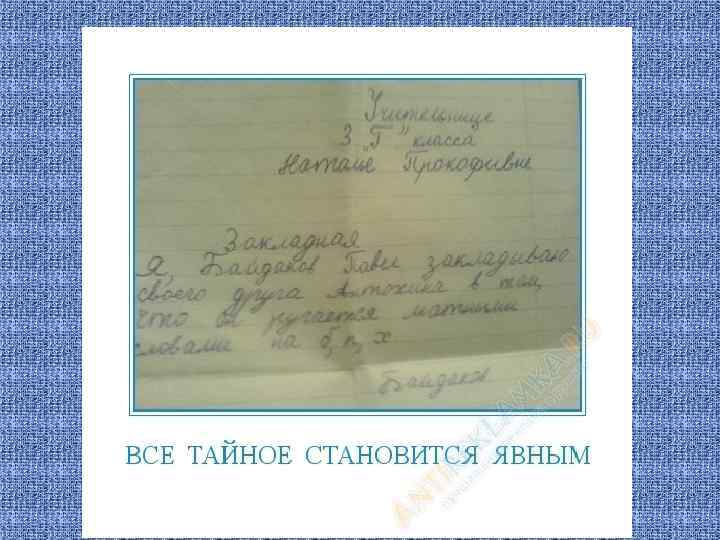 Учительнице
3 "Г" класса
Наталье Прокофивне
Закладная
Я, Байдаков Павел закладываю
своего друга Антохина в том,
что он ругается матными
словами на б, п, х
Байдаков
ВСЕ ТАЙНОЕ СТАНОВИТСЯ ЯВНЫМ
ANTIREKLAMKA.RU